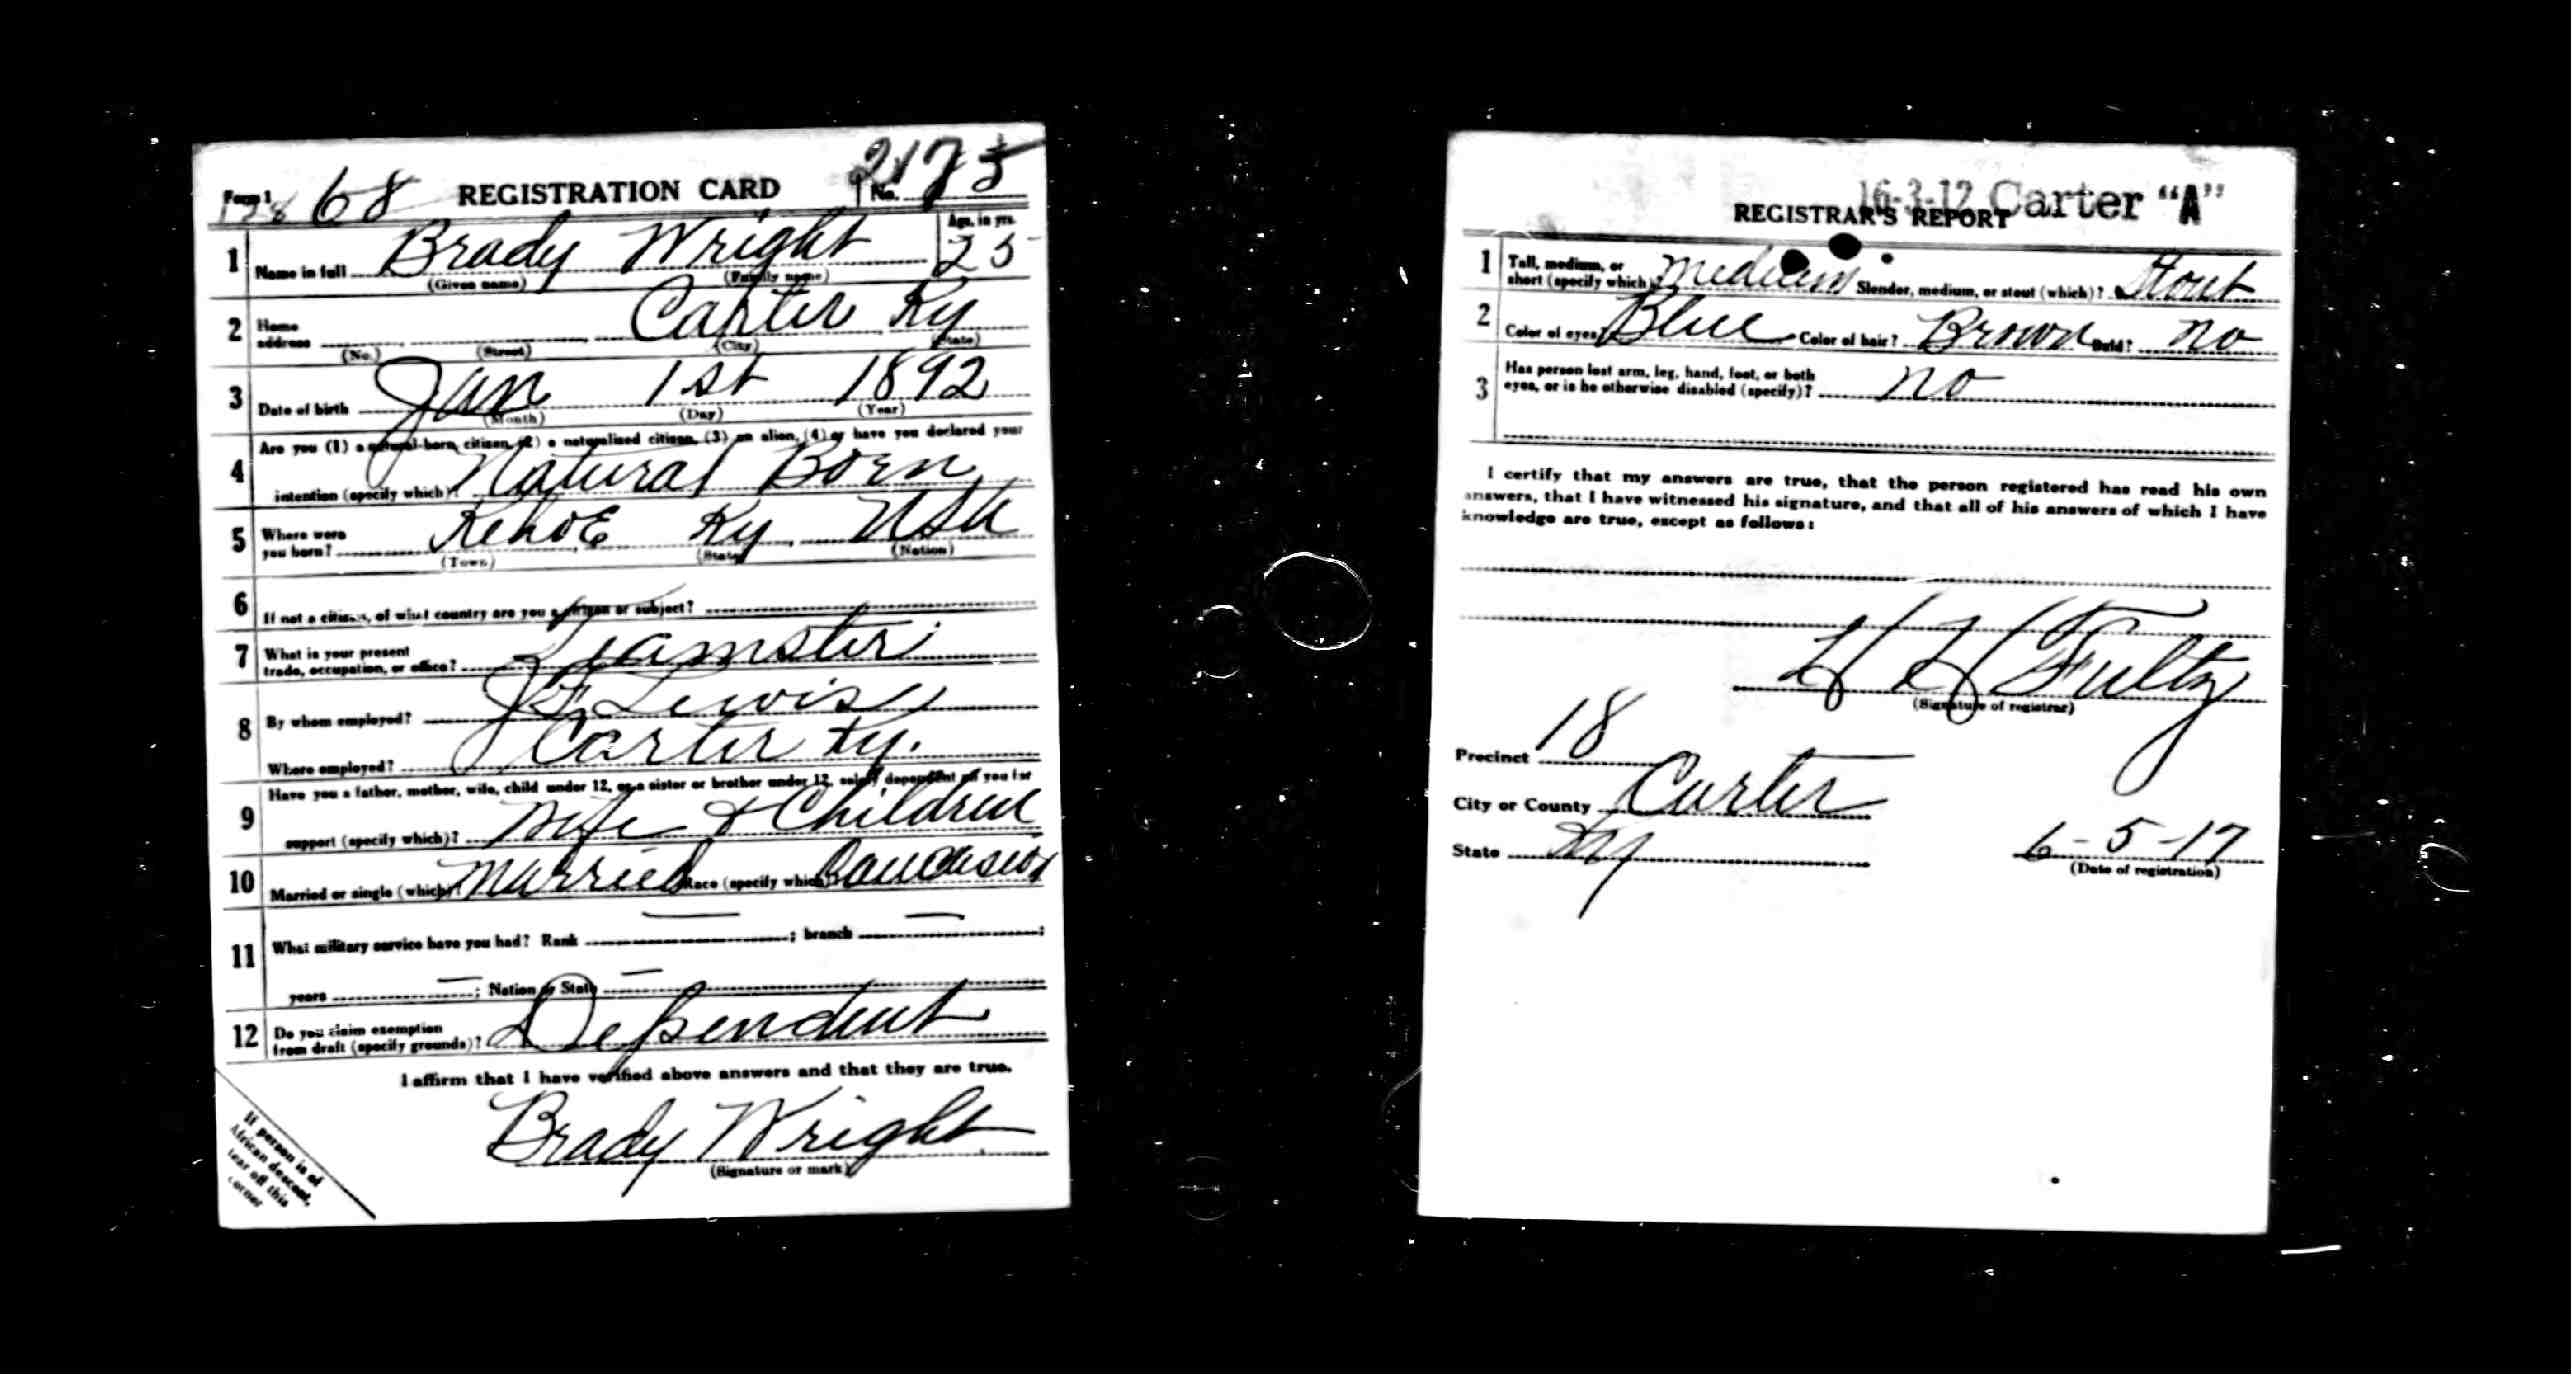 Form 1 68 REGISTRATION CARD No. 2175
1 Name in full Brady Wright Age, in yrs. 25
(Given name) (Family name)
2 Home address Carter Ky
(No.) (Street) (City) (State)
3 Date of birth Jan 1st 1892
(Month) (Day) (Year)
4 Are you (1) a natural-born citizen, (2) a naturalized citizen, (3) an alien, (4) or have you declared your
intention (specify which)? Natural Born
5 Where were you born? KehoE Ky USA
(Town) (State) (Nation)
6 If not a citizen, of what country are you a citizen or subject?
7 What is your present trade, occupation, or office? Teamster
8 By whom employed? J F Lewis
Where employed? Carter Ky.
9 Have you a father, mother, wife, child under 12, or a sister or brother under 12, solely dependent on you for
support (specify which)? Wife & Children
10 Married or single (which)? Married Race (specify which)? Caucasion
11 What military service have you had? Rank — ; branch — ;
years — ; Nation or State —
12 Do you claim exemption from draft (specify grounds)? Dependent
I affirm that I have verified above answers and that they are true.
Brady Wright
(Signature or mark)
If person is of
African descent,
tear off this
corner
16-3-12 Carter "A"
REGISTRAR'S REPORT
1 Tall, medium, or short (specify which)? Medium Slender, medium, or stout (which)? Stout
2 Color of eyes? Blue Color of hair? Brown Bald? no
3 Has person lost arm, leg, hand, foot, or both
eyes, or is he otherwise disabled (specify)? no
I certify that my answers are true, that the person registered has read his own
answers, that I have witnessed his signature, and that all of his answers of which I have
knowledge are true, except as follows:
H H Fultz
(Signature of registrar)
Precinct 18
City or County Carter
State Ky 6-5-17
(Date of registration)